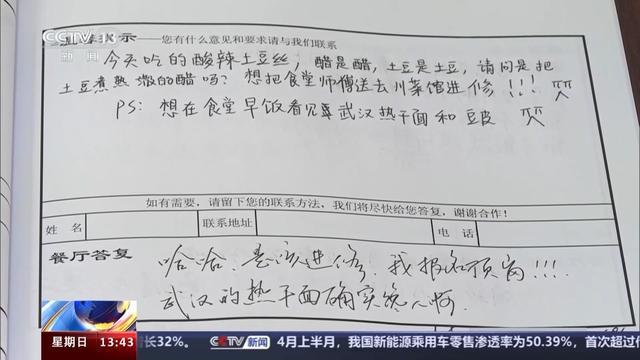 CCTV 13
新闻
示——您有什么意见和要求请与我们联系
今天吃的酸辣土豆丝，醋是醋，土豆是土豆，请问是把
土豆煮熟撒的醋吗？想把食堂师傅送去川菜馆进修！！！
PS：想在食堂早饭看见武汉热干面和豆皮
如有需要，请留下您的联系方法，我们将尽快给您答复，谢谢合作！
姓名 联系地址 电话
餐厅答复
哈哈、是该进修，我报名顶岗!!!
武汉的热干面确实馋人啊。
星期日 13:43 增长32%。 CCTV 新闻 4月上半月，我国新能源乘用车零售渗透率为50.39%，首次超过